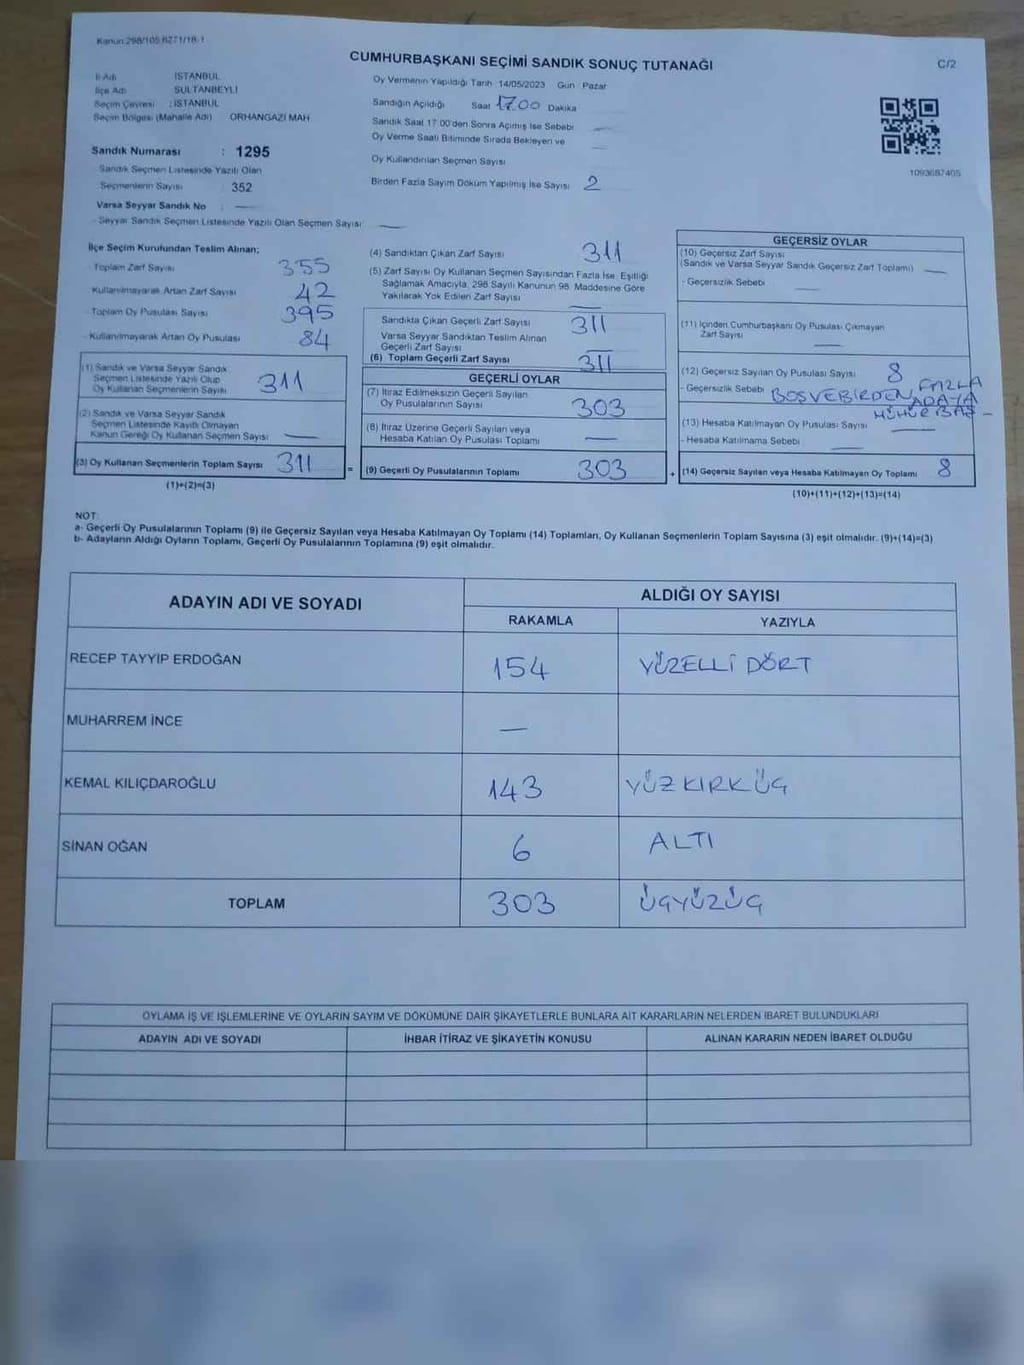 Kanun:298/105.6271/18-1
CUMHURBAŞKANI SEÇİMİ SANDIK SONUÇ TUTANAĞI
C/2
İl Adı İSTANBUL
İlçe Adı SULTANBEYLİ
Seçim Çevresi : İSTANBUL
Seçim Bölgesi (Mahalle Adı) ORHANGAZİ MAH
Sandık Numarası : 1295
Sandık Seçmen Listesinde Yazılı Olan
Seçmenlerin Sayısı 352
Varsa Seyyar Sandık No : —
- Seyyar Sandık Seçmen Listesinde Yazılı Olan Seçmen Sayısı —
Oy Vermenin Yapıldığı Tarih 14/05/2023 Gün Pazar
Sandığın Açıldığı Saat 17.00 Dakika
Sandık Saat 17.00'den Sonra Açılmış İse Sebebi —
Oy Verme Saati Bitiminde Sırada Bekleyen ve —
Oy Kullandırılan Seçmen Sayısı
Birden Fazla Sayım Döküm Yapılmış İse Sayısı 2
1093687405
İlçe Seçim Kurulundan Teslim Alınan;
- Toplam Zarf Sayısı 355
Kullanılmayarak Artan Zarf Sayısı 42
- Toplam Oy Pusulası Sayısı 395
- Kullanılmayarak Artan Oy Pusulası 84
(1) Sandık ve Varsa Seyyar Sandık
Seçmen Listesinde Yazılı Olup
Oy Kullanan Seçmenlerin Sayısı 311
(2) Sandık ve Varsa Seyyar Sandık
Seçmen Listesinde Kayıtlı Olmayan
Kanun Gereği Oy Kullanan Seçmen Sayısı —
(3) Oy Kullanan Seçmenlerin Toplam Sayısı 311
(1)+(2)=(3)
(4) Sandıktan Çıkan Zarf Sayısı 311
(5) Zarf Sayısı Oy Kullanan Seçmen Sayısından Fazla İse, Eşitliği
Sağlamak Amacıyla, 298 Sayılı Kanunun 98. Maddesine Göre
Yakılarak Yok Edilen Zarf Sayısı —
Sandıkta Çıkan Geçerli Zarf Sayısı 311
Varsa Seyyar Sandıktan Teslim Alınan
Geçerli Zarf Sayısı —
(6) Toplam Geçerli Zarf Sayısı 311
GEÇERLİ OYLAR
(7) İtiraz Edilmeksizin Geçerli Sayılan
Oy Pusulalarının Sayısı 303
(8) İtiraz Üzerine Geçerli Sayılan veya
Hesaba Katılan Oy Pusulası Toplamı —
= (9) Geçerli Oy Pusulalarının Toplamı 303
GEÇERSİZ OYLAR
(10) Geçersiz Zarf Sayısı
(Sandık ve Varsa Seyyar Sandık Geçersiz Zarf Toplamı) —
- Geçersizlik Sebebi —
(11) İçinden Cumhurbaşkanı Oy Pusulası Çıkmayan
Zarf Sayısı —
(12) Geçersiz Sayılan Oy Pusulası Sayısı 8
- Geçersizlik Sebebi BOŞ VE BİRDEN FAZLA
ADAYA
MÜHÜR BAS-
(13) Hesaba Katılmayan Oy Pusulası Sayısı —
- Hesaba Katılmama Sebebi —
+ (14) Geçersiz Sayılan veya Hesaba Katılmayan Oy Toplamı 8
(10)+(11)+(12)+(13)=(14)
NOT:
a- Geçerli Oy Pusulalarının Toplamı (9) ile Geçersiz Sayılan veya Hesaba Katılmayan Oy Toplamı (14) Toplamları, Oy Kullanan Seçmenlerin Toplam Sayısına (3) eşit olmalıdır. (9)+(14)=(3)
b- Adayların Aldığı Oyların Toplamı, Geçerli Oy Pusulalarının Toplamına (9) eşit olmalıdır.
ADAYIN ADI VE SOYADI ALDIĞI OY SAYISI
RAKAMLA YAZIYLA
RECEP TAYYİP ERDOĞAN 154 YÜZELLİ DÖRT
MUHARREM İNCE —
KEMAL KILIÇDAROĞLU 143 YÜZ KIRK ÜÇ
SİNAN OĞAN 6 ALTI
TOPLAM 303 ÜÇYÜZÜÇ
OYLAMA İŞ VE İŞLEMLERİNE VE OYLARIN SAYIM VE DÖKÜMÜNE DAİR ŞİKAYETLERLE BUNLARA AİT KARARLARIN NELERDEN İBARET BULUNDUKLARI
ADAYIN ADI VE SOYADI İHBAR İTİRAZ VE ŞİKAYETİN KONUSU ALINAN KARARIN NEDEN İBARET OLDUĞU